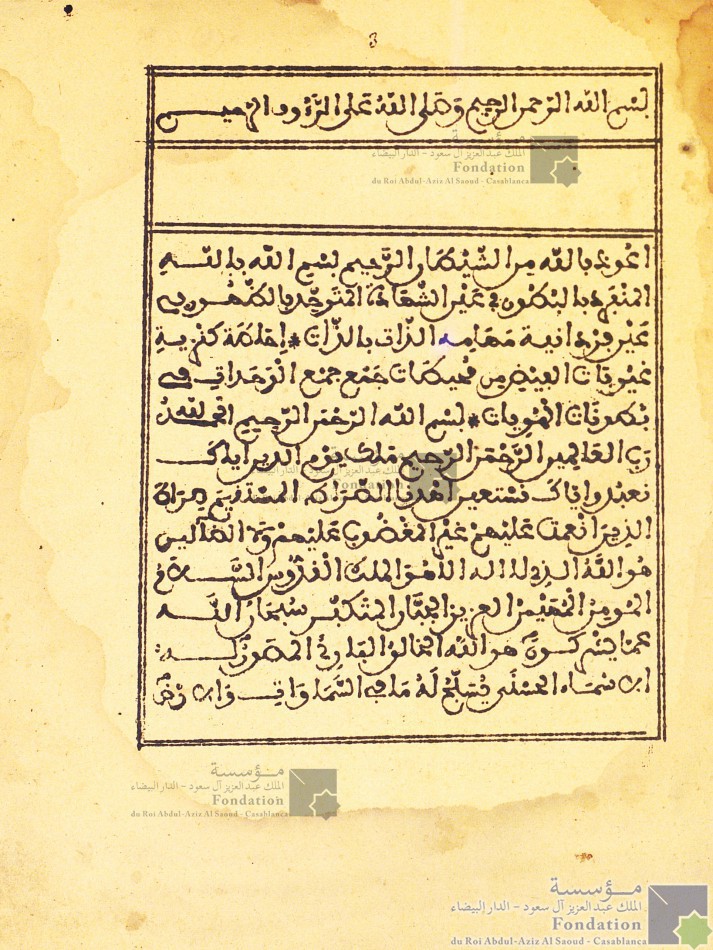 3
بسم الله الرحمن الرحيم وصلى الله على الرؤوف الرحيم
مؤسسة
الملك عبد العزيز آل سعود - الدار البيضاء
Fondation
du Roi Abdul-Aziz Al Saoud - Casablanca
اعوذ بالله من الشيطان الرجيم بسم الله بالله
المنفرد بالبطون في غيب الشهادة المتوحد بالظهور في
عين فردانية الذات بالذات إحاطة كنزية
غيوبات البيض من محيطات جمع جمع الوحدات في
بطونات الهويات بسم الله الرحمن الرحيم الحمد لله
رب العالمين الرحمن الرحيم ملك يوم الدين اياك
نعبد واياك نستعين اهدنا الصراط المستقيم صراط
الذين انعمت عليهم غير المغضوب عليهم ولا الضالين
هو الله الذي لا اله الا هو الملك القدوس السلام
المومن المهيمن العزيز الجبار المتكبر سبحان الله
عما يشركون هو الله الخالق البارئ المصور له
الاسماء الحسنى يسبح له ما في السماوات والارض
مؤسسة
الملك عبد العزيز آل سعود - الدار البيضاء
Fondation
du Roi Abdul-Aziz Al Saoud - Casablanca
مؤسسة
الملك عبد العزيز آل سعود - الدار البيضاء
Fondation
du Roi Abdul-Aziz Al Saoud - Casablanca